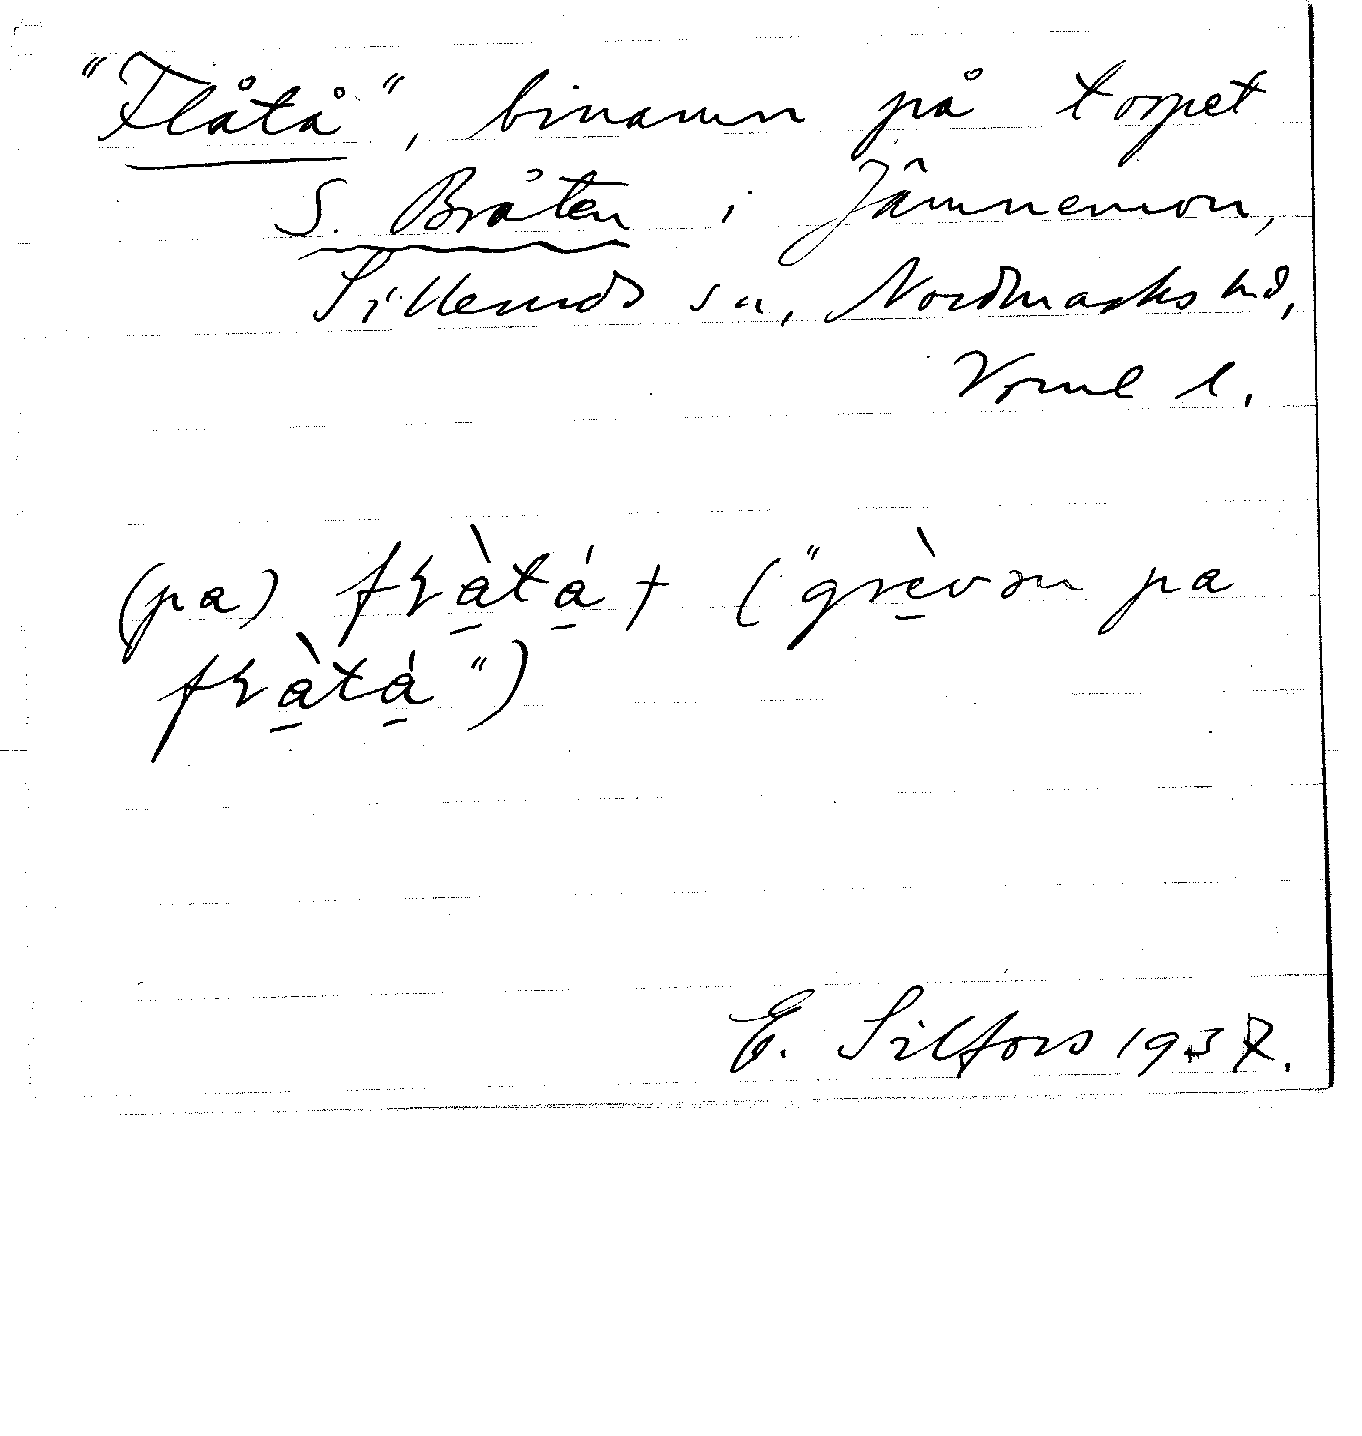 "Flåtå", binamn på torpet
S. Bråten i Jämnemon,
Silleruds sn, Nordmarks hd,
Vrml l.
(pa) fɽàtá † ("grèvən pa
fɽàtá")
E. Silfors 1937.